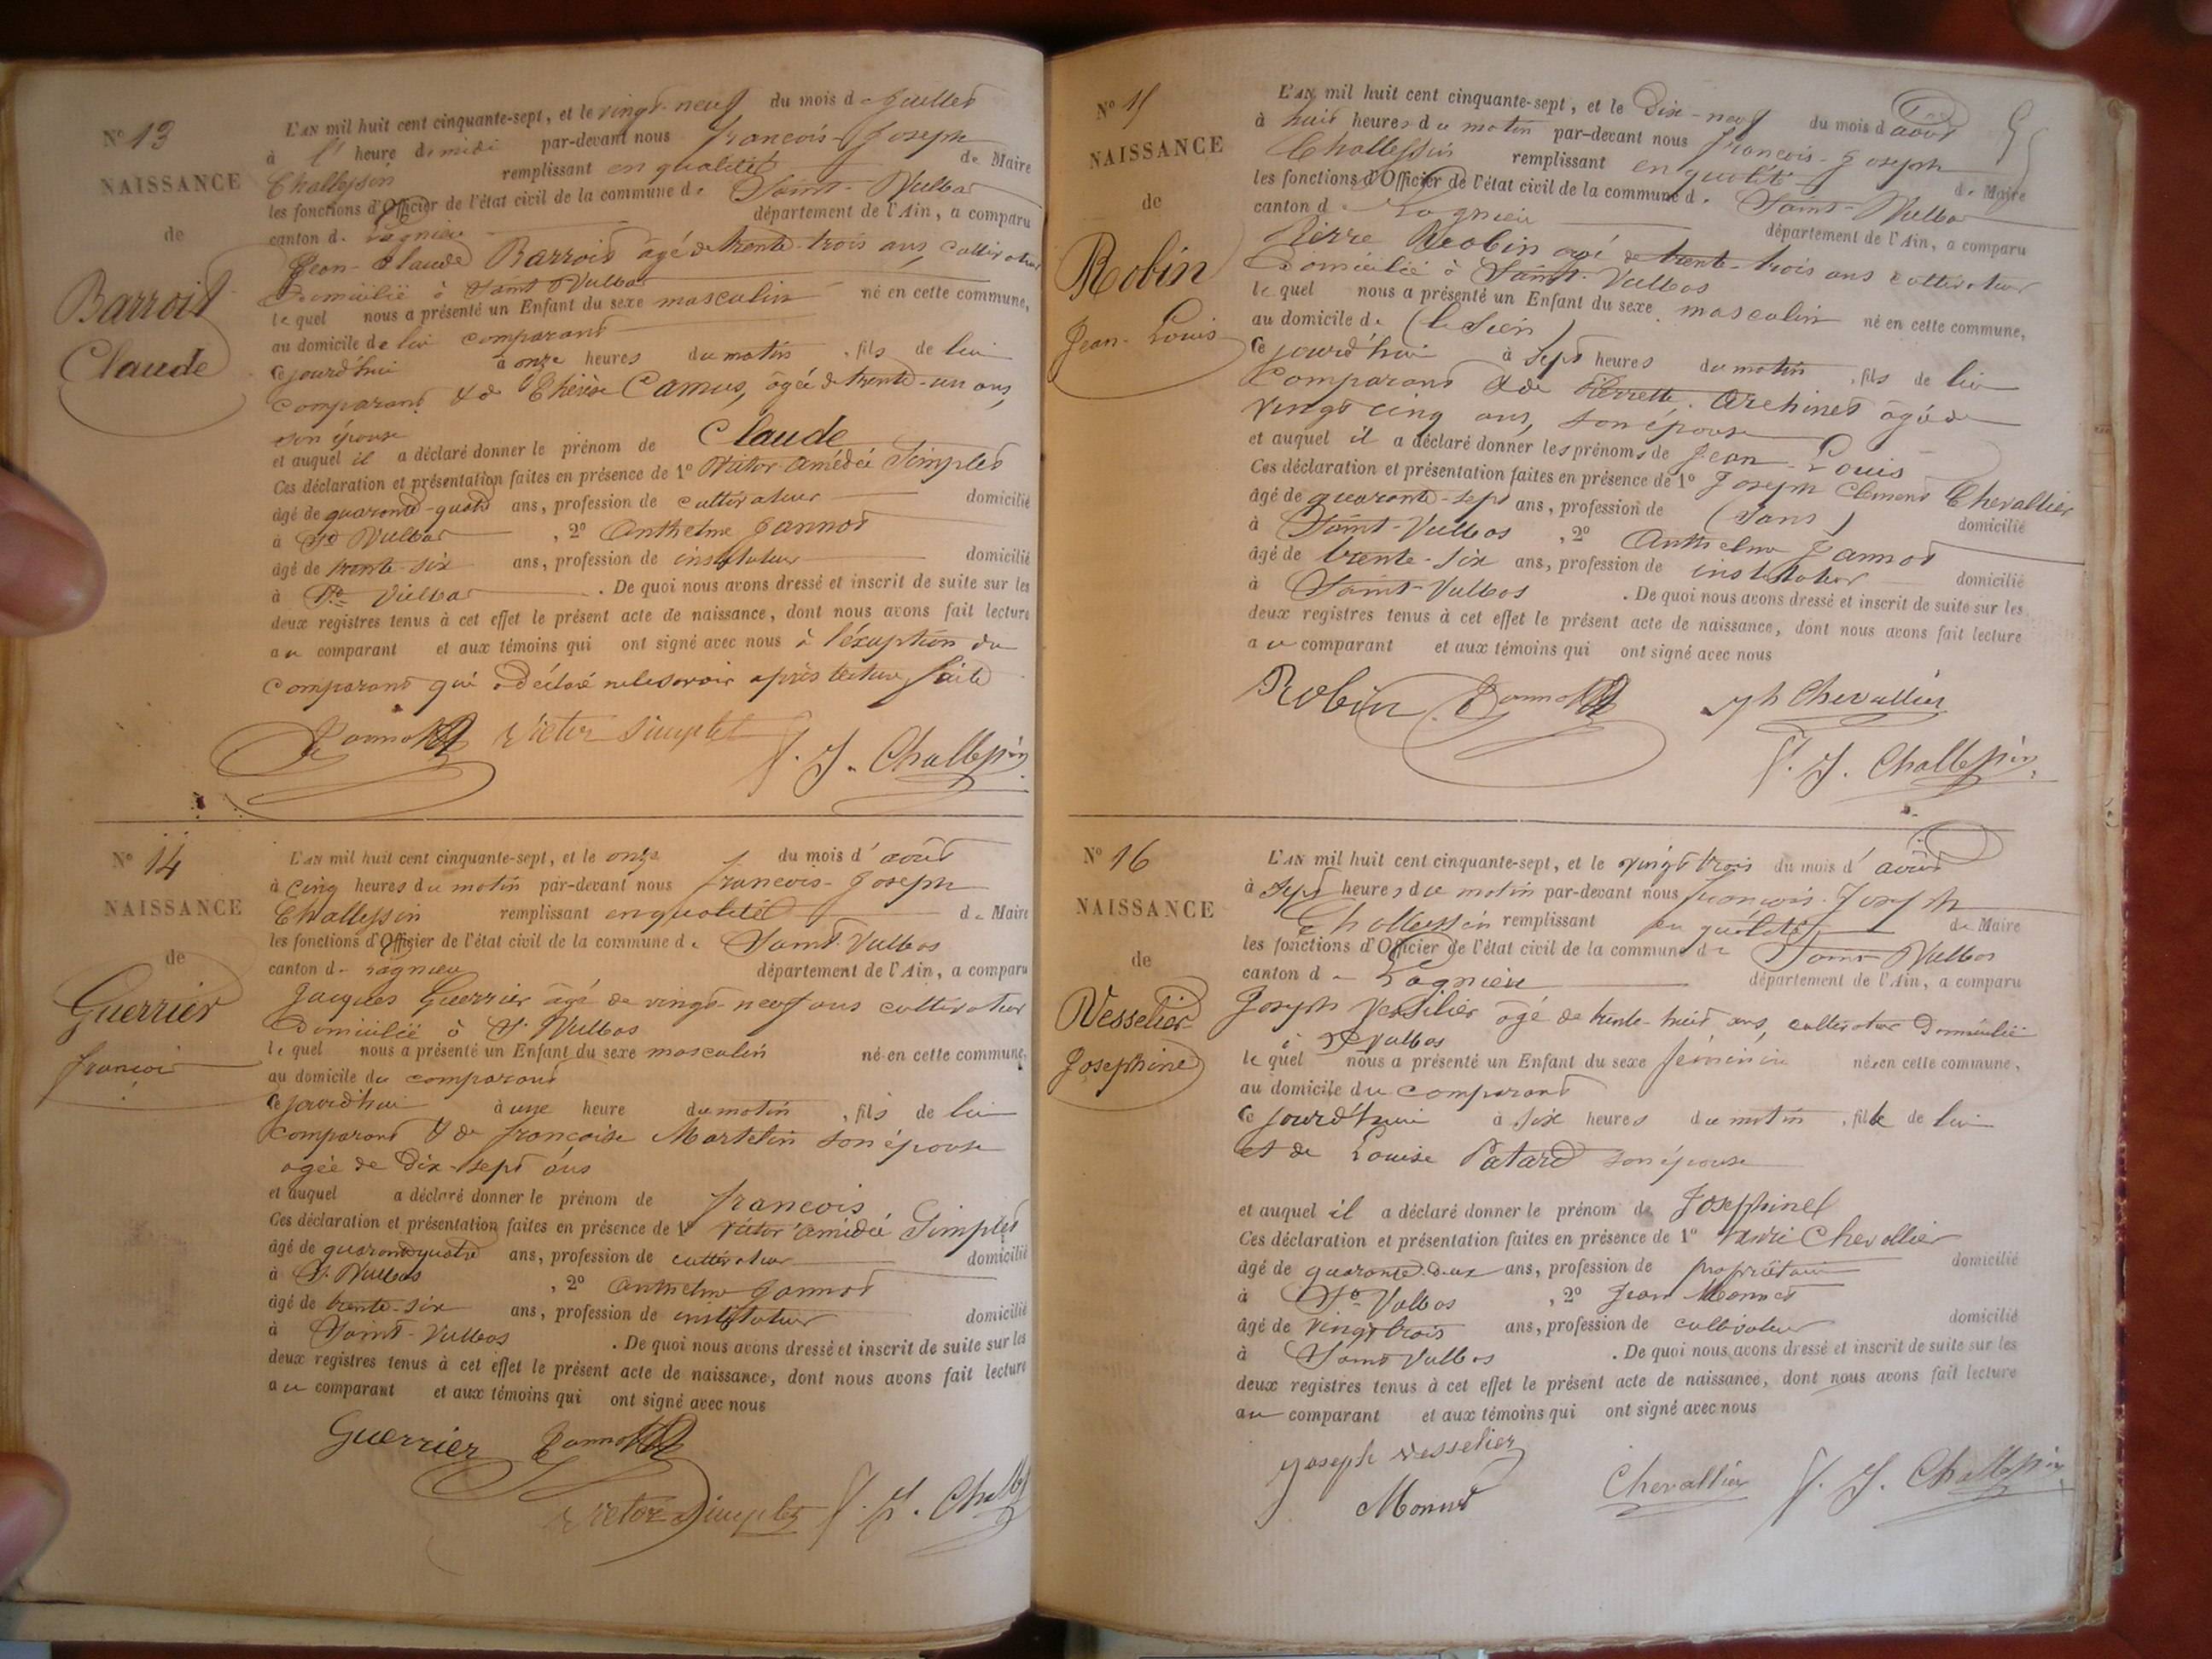 N° 13
NAISSANCE
de
Barroit
Claude
L'AN mil huit cent cinquante-sept, et le vingt-neuf du mois de Juillet
à l' heure de midi par-devant nous françois-Joseph
Challessin remplissant en qualité de Maire
les fonctions d'Officier de l'état civil de la commune de Saint-Vulbas
canton de Lagnieu département de l'Ain, a comparu
Jean-Claude Barroit âgé de trente-trois ans, cultivateur
Domicilié à Saint Vulbas
lequel nous a présenté un Enfant du sexe masculin né en cette commune,
au domicile de lui comparant
Cejourd'hui à onze heures du matin, fils de lui
comparant & de Thérèse Camus, âgée de trente-un ans,
son épouse
et auquel il a déclaré donner le prénom de Claude
Ces déclaration et présentation faites en présence de 1° Victor-amédée Simplet
âgé de quarante-quatre ans, profession de cultivateur domicilié
à St Vulbas, 2° Anthelme Jannot
âgé de trente-six ans, profession de instituteur domicilié
à St Vulbas. De quoi nous avons dressé et inscrit de suite sur les
deux registres tenus à cet effet le présent acte de naissance, dont nous avons fait lecture
au comparant et aux témoins qui ont signé avec nous à l'exception du
comparant qui a déclaré ne le savoir après lecture faite
Jannot Victor Simplet
f. J. Challessin
N° 14
NAISSANCE
de
Guerrier
françois
L'AN mil huit cent cinquante-sept, et le onze du mois d'août
à cinq heures du matin par-devant nous françois-Joseph
Challessin remplissant en qualité de Maire
les fonctions d'Officier de l'état civil de la commune de Saint-Vulbas
canton de Lagnieu département de l'Ain, a comparu
Jacques Guerrier âgé de vingt-neuf ans cultivateur
Domicilié à St Vulbas
lequel nous a présenté un Enfant du sexe masculin né en cette commune,
au domicile du comparant
Cejourd'hui à une heure du matin, fils de lui
comparant & de françoise Martelin son épouse
agée de Dix-sept ans
et auquel a déclaré donner le prénom de françois
Ces déclaration et présentation faites en présence de 1° Victor amédée Simplet
âgé de quarante quatre ans, profession de cultivateur domicilié
à St Vulbas, 2° Anthelme Jannot
âgé de trente-six ans, profession de instituteur domicilié
à Saint-Vulbas. De quoi nous avons dressé et inscrit de suite sur les
deux registres tenus à cet effet le présent acte de naissance, dont nous avons fait lecture
au comparant et aux témoins qui ont signé avec nous
Guerrier Jannot
Victor Simplet f. J. Challes
N° 15
NAISSANCE
de
Robin
Jean-Louis
L'AN mil huit cent cinquante-sept, et le Dix-neuf du mois d'août
à huit heures du matin par-devant nous françois-Joseph
Challessin remplissant en qualité de Maire
les fonctions d'Officier de l'état civil de la commune de Saint-Vulbas
canton de Lagnieu département de l'Ain, a comparu
Pierre Robin agé de trente-trois ans cultivateur
Domicilié à Saint-Vulbas
lequel nous a présenté un Enfant du sexe masculin né en cette commune,
au domicile de (le Sien)
Ce jourd'hui à sept heures du matin, fils de lui
comparant & de Pierrette Archinet âgée de
vingt cinq ans, son épouse
et auquel il a déclaré donner les prénoms de Jean-Louis
Ces déclaration et présentation faites en présence de 1° Joseph Clement Chevallier
âgé de quarante-sept ans, profession de (Sans) domicilié
à Saint-Vulbas, 2° Anthelme Jannot
âgé de trente-six ans, profession de instituteur domicilié
à Saint-Vulbas. De quoi nous avons dressé et inscrit de suite sur les
deux registres tenus à cet effet le présent acte de naissance, dont nous avons fait lecture
au comparant et aux témoins qui ont signé avec nous
Robin Jannot jph Chevallier
f. J. Challessin
N° 16
NAISSANCE
de
Vesselier
Josephine
L'AN mil huit cent cinquante-sept, et le vingt trois du mois d'août
à sept heures du matin par-devant nous françois-Joseph
Challessin remplissant en qualité de Maire
les fonctions d'Officier de l'état civil de la commune de Saint-Vulbas
canton de Lagnieu département de l'Ain, a comparu
Joseph Vessilier âgé de trente-huit ans, cultivateur Domicilié
à St Vulbas
lequel nous a présenté un Enfant du sexe féminin née en cette commune,
au domicile du comparant
Ce jourd'hui à six heures du matin, fille de lui
et de Louise Patard son épouse
et auquel il a déclaré donner le prénom de Josephine
Ces déclaration et présentation faites en présence de 1° Chevallier
âgé de quarante-deux ans, profession de propriétaire domicilié
à St Vulbas, 2° Jean Monnet
âgé de vingt trois ans, profession de cultivateur domicilié
à Saint Vulbas. De quoi nous avons dressé et inscrit de suite sur les
deux registres tenus à cet effet le présent acte de naissance, dont nous avons fait lecture
au comparant et aux témoins qui ont signé avec nous
Joseph vesselier
Monnet Chevallier f. J. Challessin